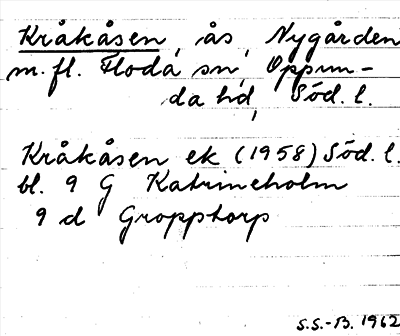 Kråkåsen, ås, Nygården
m.fl. Floda sn, Oppun-
da hd, Söd. l.
Kråkåsen ek (1958) Söd. l.
bl. 9 G Katrineholm
9 d Gropptorp
S.S.-B. 1962